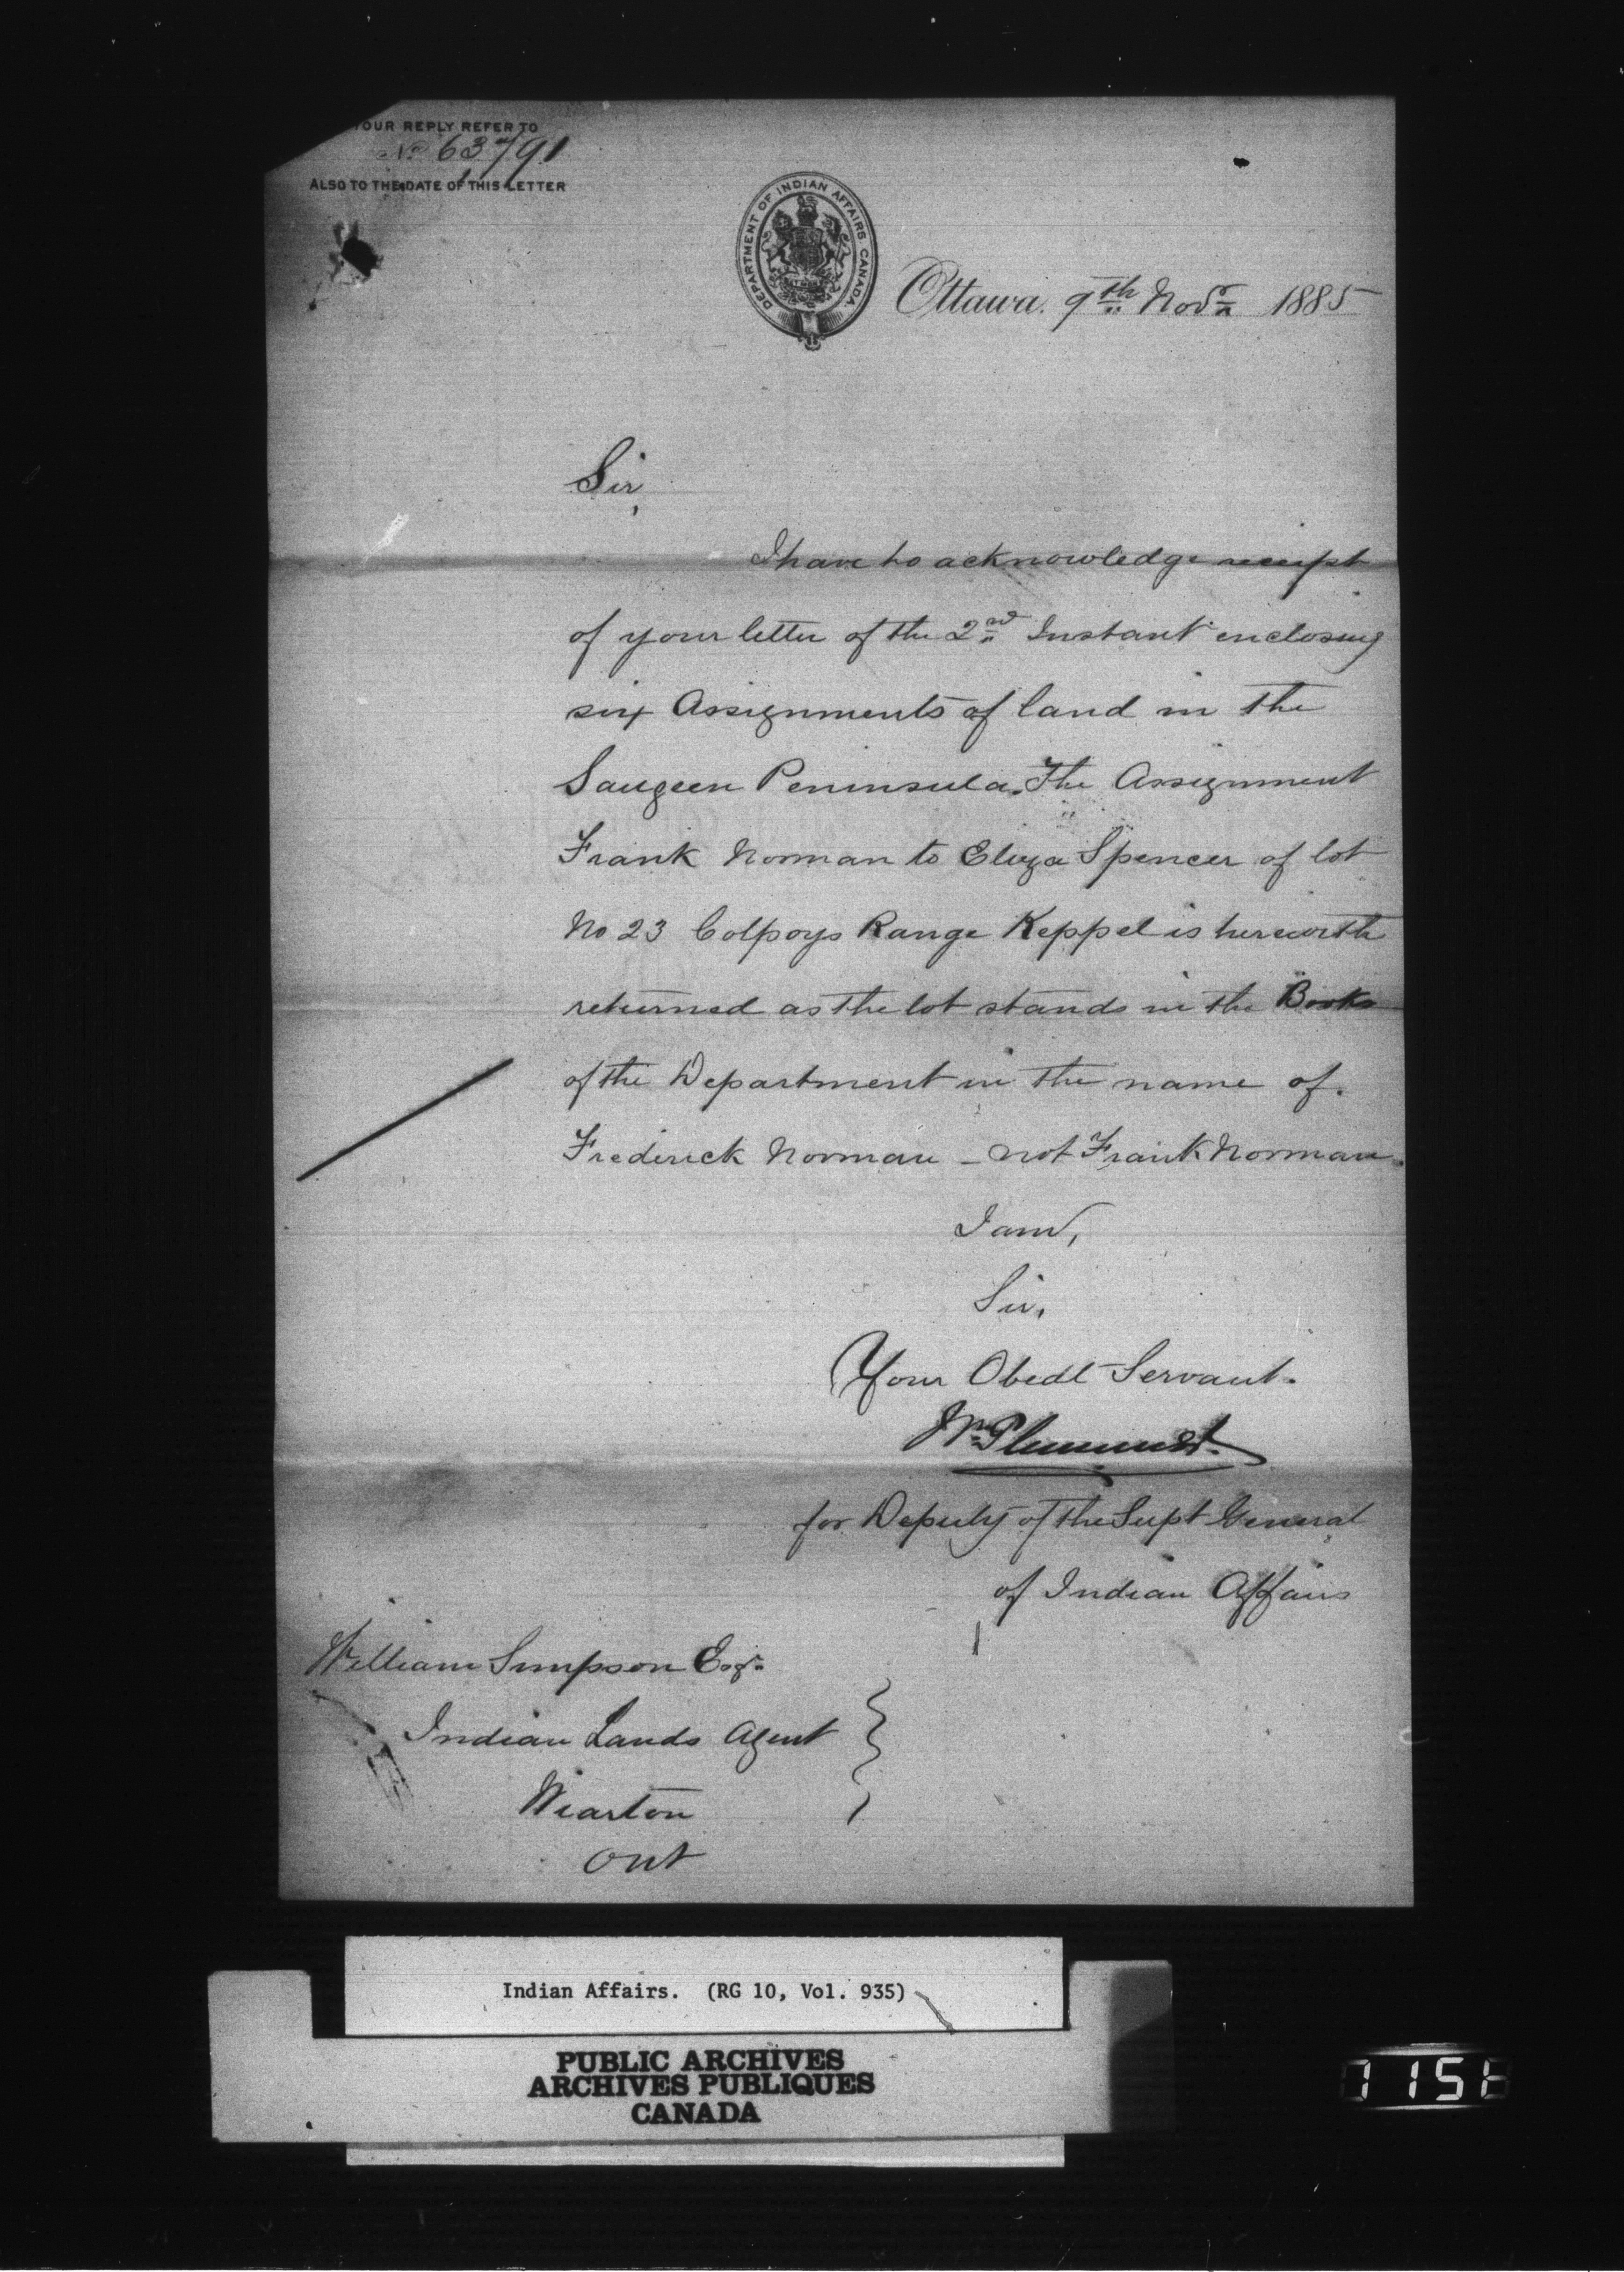 YOUR REPLY REFER TO
No 63791
ALSO TO THE DATE OF THIS LETTER
DEPARTMENT OF INDIAN AFFAIRS CANADA
Ottawa. 9th Novr 1885
Sir,
I have to acknowledge receipt
of your letter of the 2nd Instant enclosing
six Assignments of land in the
Saugeen Peninsula. The Assignment
Frank Norman to Eliza Spencer of lot
No 23 Colpoys Range Keppel is herewith
returned as the lot stands in the Books
of the Department in the name of.
Frederick Norman - not Frank Norman.
I am,
Sir,
Your Obedt Servant.
Wm Plummer
for Deputy of the Supt General
of Indian Affairs
William Simpson Esqr.
Indian Lands Agent
Wiarton
Ont
Indian Affairs. (RG 10, Vol. 935)
PUBLIC ARCHIVES
ARCHIVES PUBLIQUES
CANADA